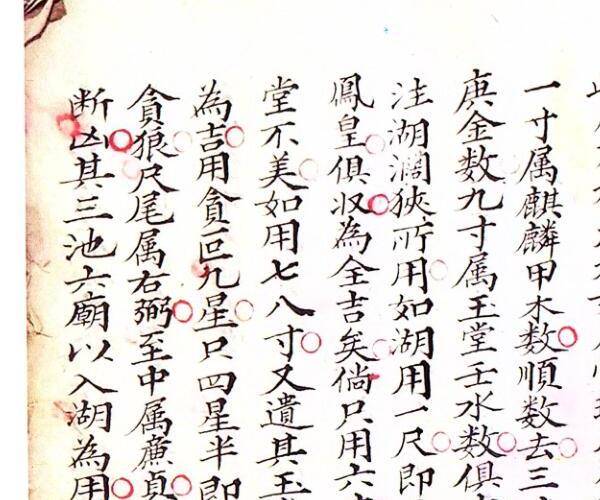 一寸属麒麟甲木数順数去三
庚金数九寸属玉堂壬水数俱
注湖濶狹所用如湖用一尺即
鳳皇俱収為全吉矣倘只用六
堂不美如用七八寸又遺其玉
為吉用貪巨九星只四星半即
貪狼尺尾属右弼至中属廉貞
断凶其三池六廟以入湖為用